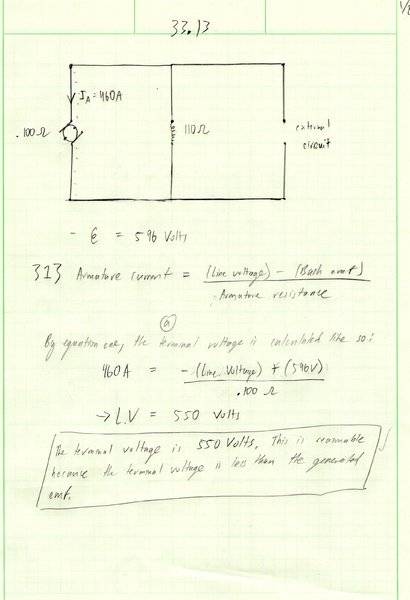 33.13
I_A = 460A
.100 Ω
110 Ω
external
circuit
- ℰ = 596 Volts
313 Armature current = (Line voltage) - (Back emf)
Armature resistance
(a)
By equation one, the terminal voltage is calculated like so:
460A = - (Line Voltage) + (596V)
.100 Ω
→ L.V = 550 Volts
The terminal voltage is 550 Volts. This is reasonable
because the terminal voltage is less than the generated
emf.